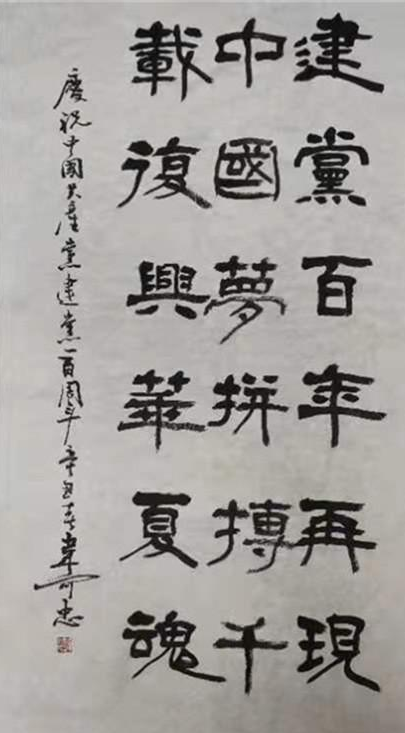 建黨百年再現
中國夢拼搏千
載復興華夏魂
慶祝中國共產黨建黨一百周年辛丑春